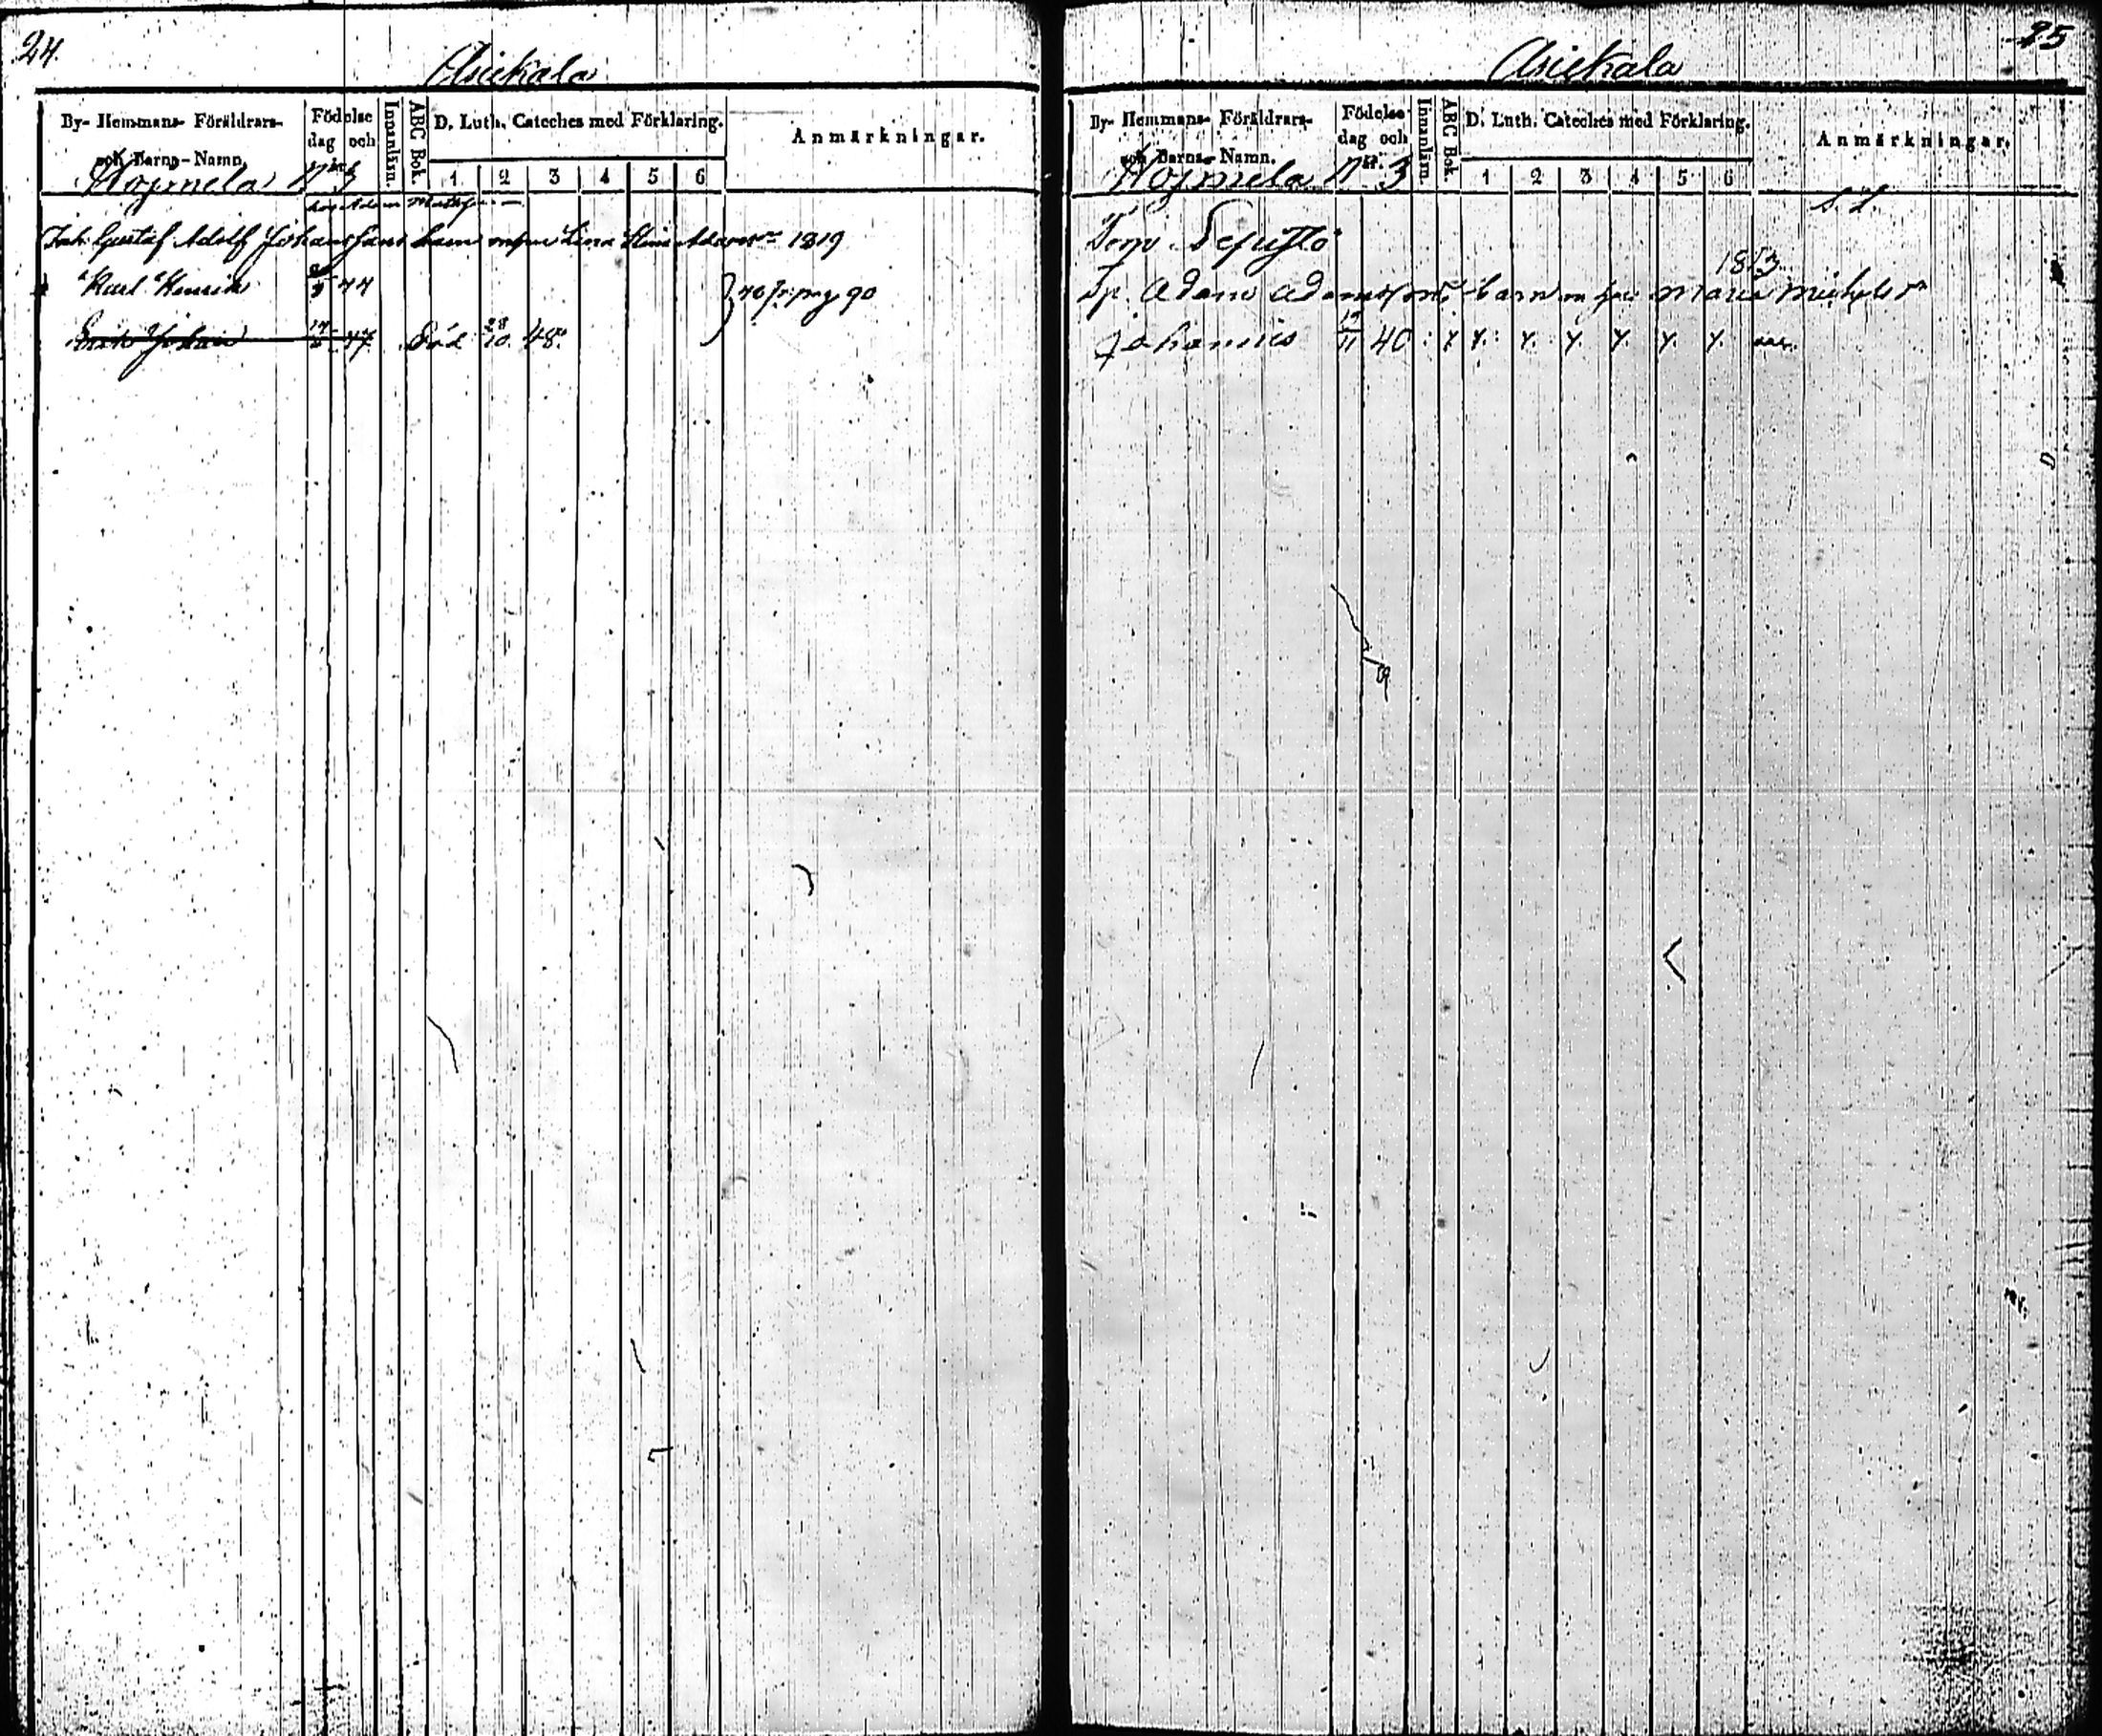 24.
Asickala
By- Hemmans- Föräldrars- och Barns-Namn.
Födelse dag och år.
Innanläsn.
ABC Bok.
D. Luth. Cateches med Förklaring.
1 2 3 4 5 6
Anmärkningar.
Kojmela N:o 3
hos Adam
Inh. Gustaf Adolf Johansson barn Lena Stina 1819
Karl Henrik 44
Erik Johan 17 47 Död 28/10 48.
25
Asickala
By- Hemmans- Föräldrars- och Barns- Namn.
Födelse dag och år.
Innanläsn.
ABC Bok.
D. Luth. Cateches med Förklaring.
1 2 3 4 5 6
Anmärkningar.
Kojmela N:o 3
Torp
1813
Adam Adamsson barn Maria
Johannes 19/11 40